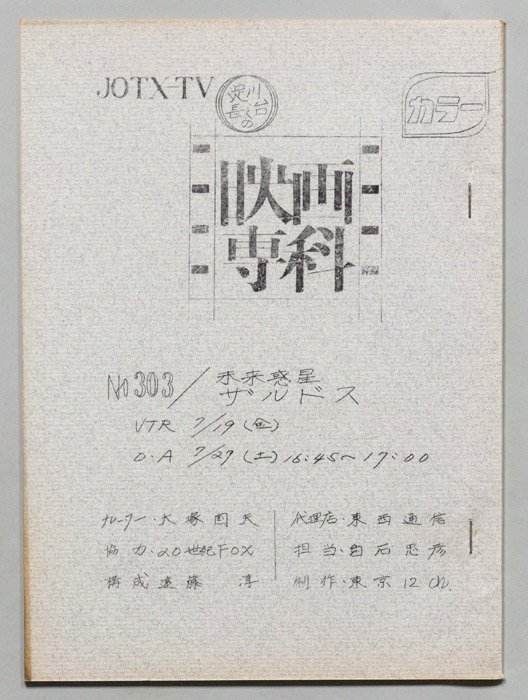 JOTX-TV
カラー
映画
専科
No 303／未来惑星
ザルドス
VTR 7/19 (金)
O・A 7/27 (土) 16:45〜17:00
ナレーター・大塚国夫
代理店・東西通信
協力・20世紀FOX
担当・白石忠彦
構成 遠藤 淳
制作・東京12ch.